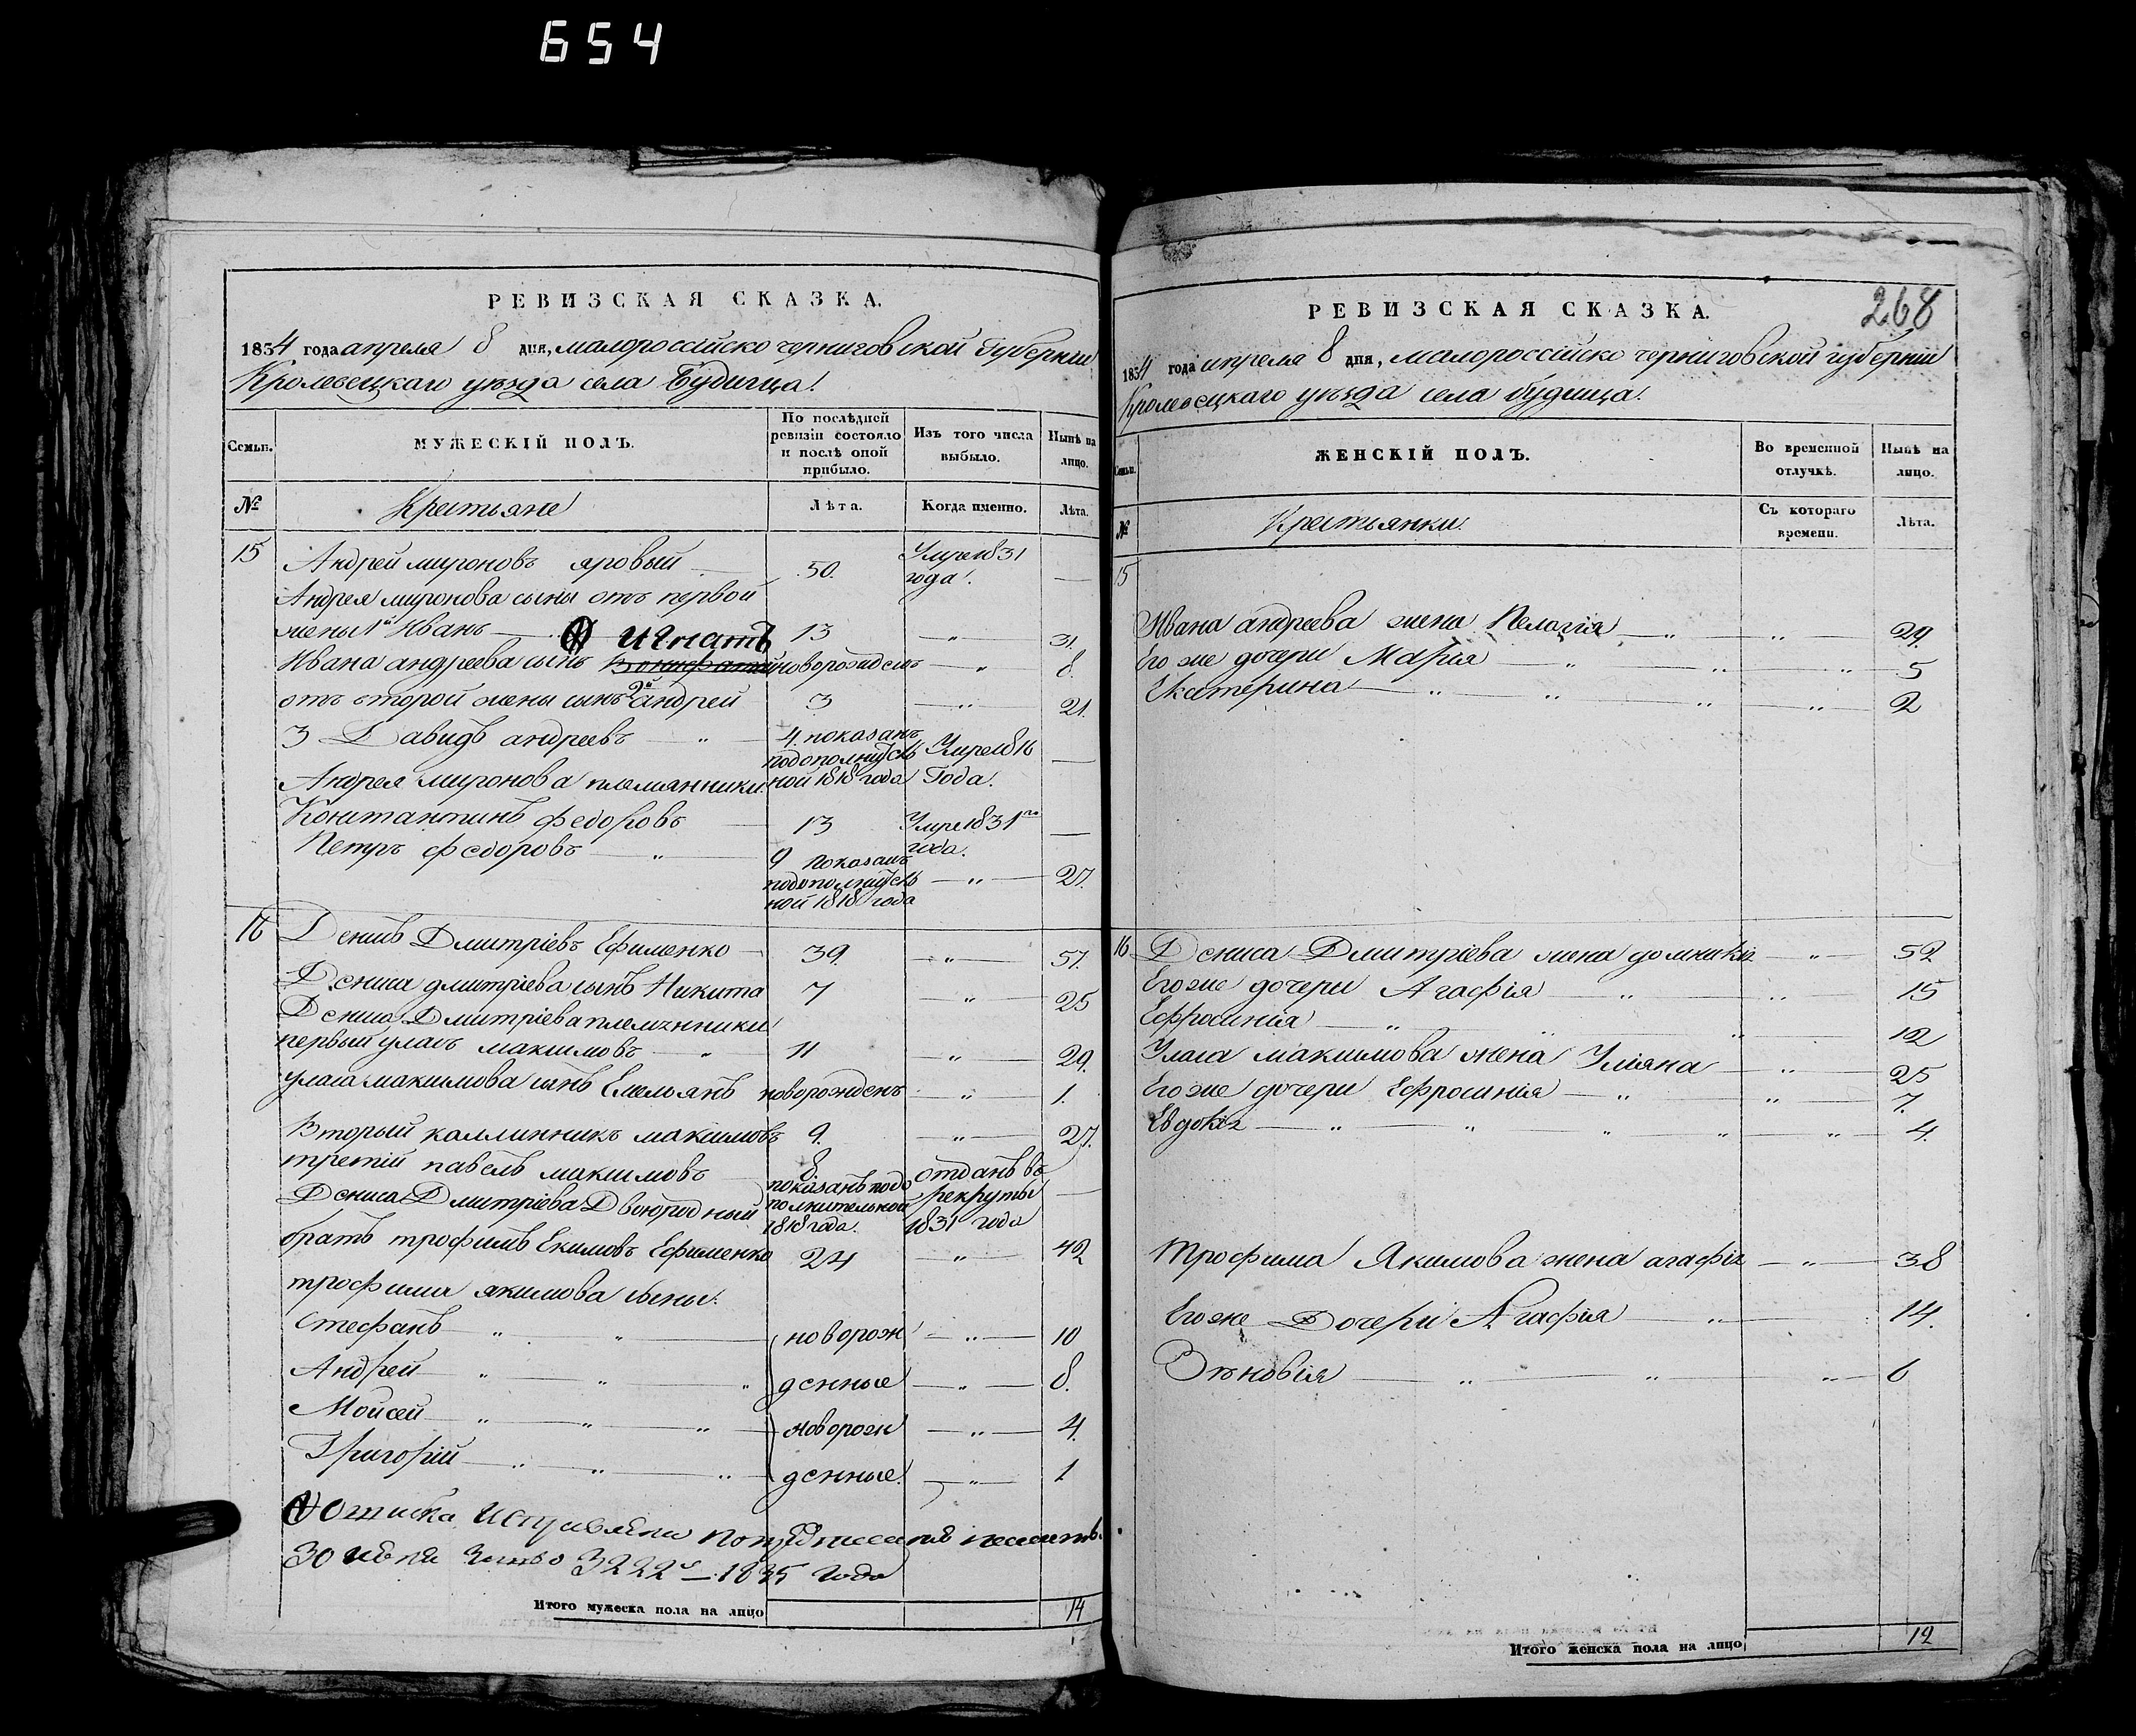 654
РЕВИЗСКАЯ СКАЗКА.
1834 года апреля 8 дня, малороссійско черниговской губерніи
Кролевецкаго уезда села Будища!
Семьи.
МУЖЕСКІЙ ПОЛЪ.
По послѣдней ревизіи состояло и послѣ оной прибыло.
Изъ того числа выбыло.
Нынѣ на лицо.
№
Крестьяне
Лѣта.
Когда именно.
Лѣта.
15 Андрей мироновъ яровый — 50. Умре 1831 года. —
Андрея миронова сыны отъ первой
жены 1й Иванъ — 13 — " — 31.
Игнатъ
Ивана андреева сынъ новорожденъ — " 8.
отъ второй жены сынъ 2й андрей 3 — " — 21.
3 Давидъ андреевъ — " — 4. показанъ по дополнительной 1818 года Умре 1816 Года. —
Андрея миронова племянники
Константинъ федоровъ — 13 Умре 1831го года. —
Петръ федоровъ — " — 9 показанъ по дополнительной 1818 года — " — 27.
16 Денисъ Дмитріевъ Ефименко — 39. — " — 51.
Дениса дмитріева сынъ Никита 7 — " — 25
Дениса Дмитріева племянники
первый уласъ максимовъ — " 11 — " — 29.
уласа максимова сынъ Емельянъ новорожденъ — " — 1.
Вторый каллинникъ максимовъ 9. — " — 27.
третій павелъ максимовъ — 8 показанъ по дополнительной 1818 года. отданъ въ рекруты 1831 года —
Дениса Дмитріева Двоюродный
братъ трофимъ Екимовъ Ефименко 24 — " — 42
трофима якимова сыны:
Стефанъ — " " — новорож — " — 10
Андрей — " — " " денные — " — 8.
Мойсей — " — " — " новорож — " — 4.
Григорій — " — " — " денные. — " — 1
30 июня 3222 — 1835 года
Итого мужеска пола на лицо 14
РЕВИЗСКАЯ СКАЗКА.
268
1834 года апреля 8 дня, малороссійско черниговской губерніи
Кролевецкаго уезда села будища.
Семьи.
ЖЕНСКІЙ ПОЛЪ.
Во временной отлучкѣ.
Нынѣ на лицо.
№
Крестьянки.
Съ котораго времени.
Лѣта.
15
Ивана андреева жена Пелагія — " — " — 29.
Его же дочери Марія " " " 5
Екатерина — " " " — " — 2
16 Дениса Дмитріева жена домникія — " — 52
Его же дочери Агафія — " — " — 15
Ефросинія — " " " — 12
Уласа максимова жена Уліяна — " — 25
Его же дочери Ефросинія — " " — 7.
Евдокія — " — " " " — " — 4.
Трофима Якимова жена агафія — " — 38
Его же Дочери Агафія — " — 14.
Зѣновія — " " " — 6
Итого женска пола на лицо 12